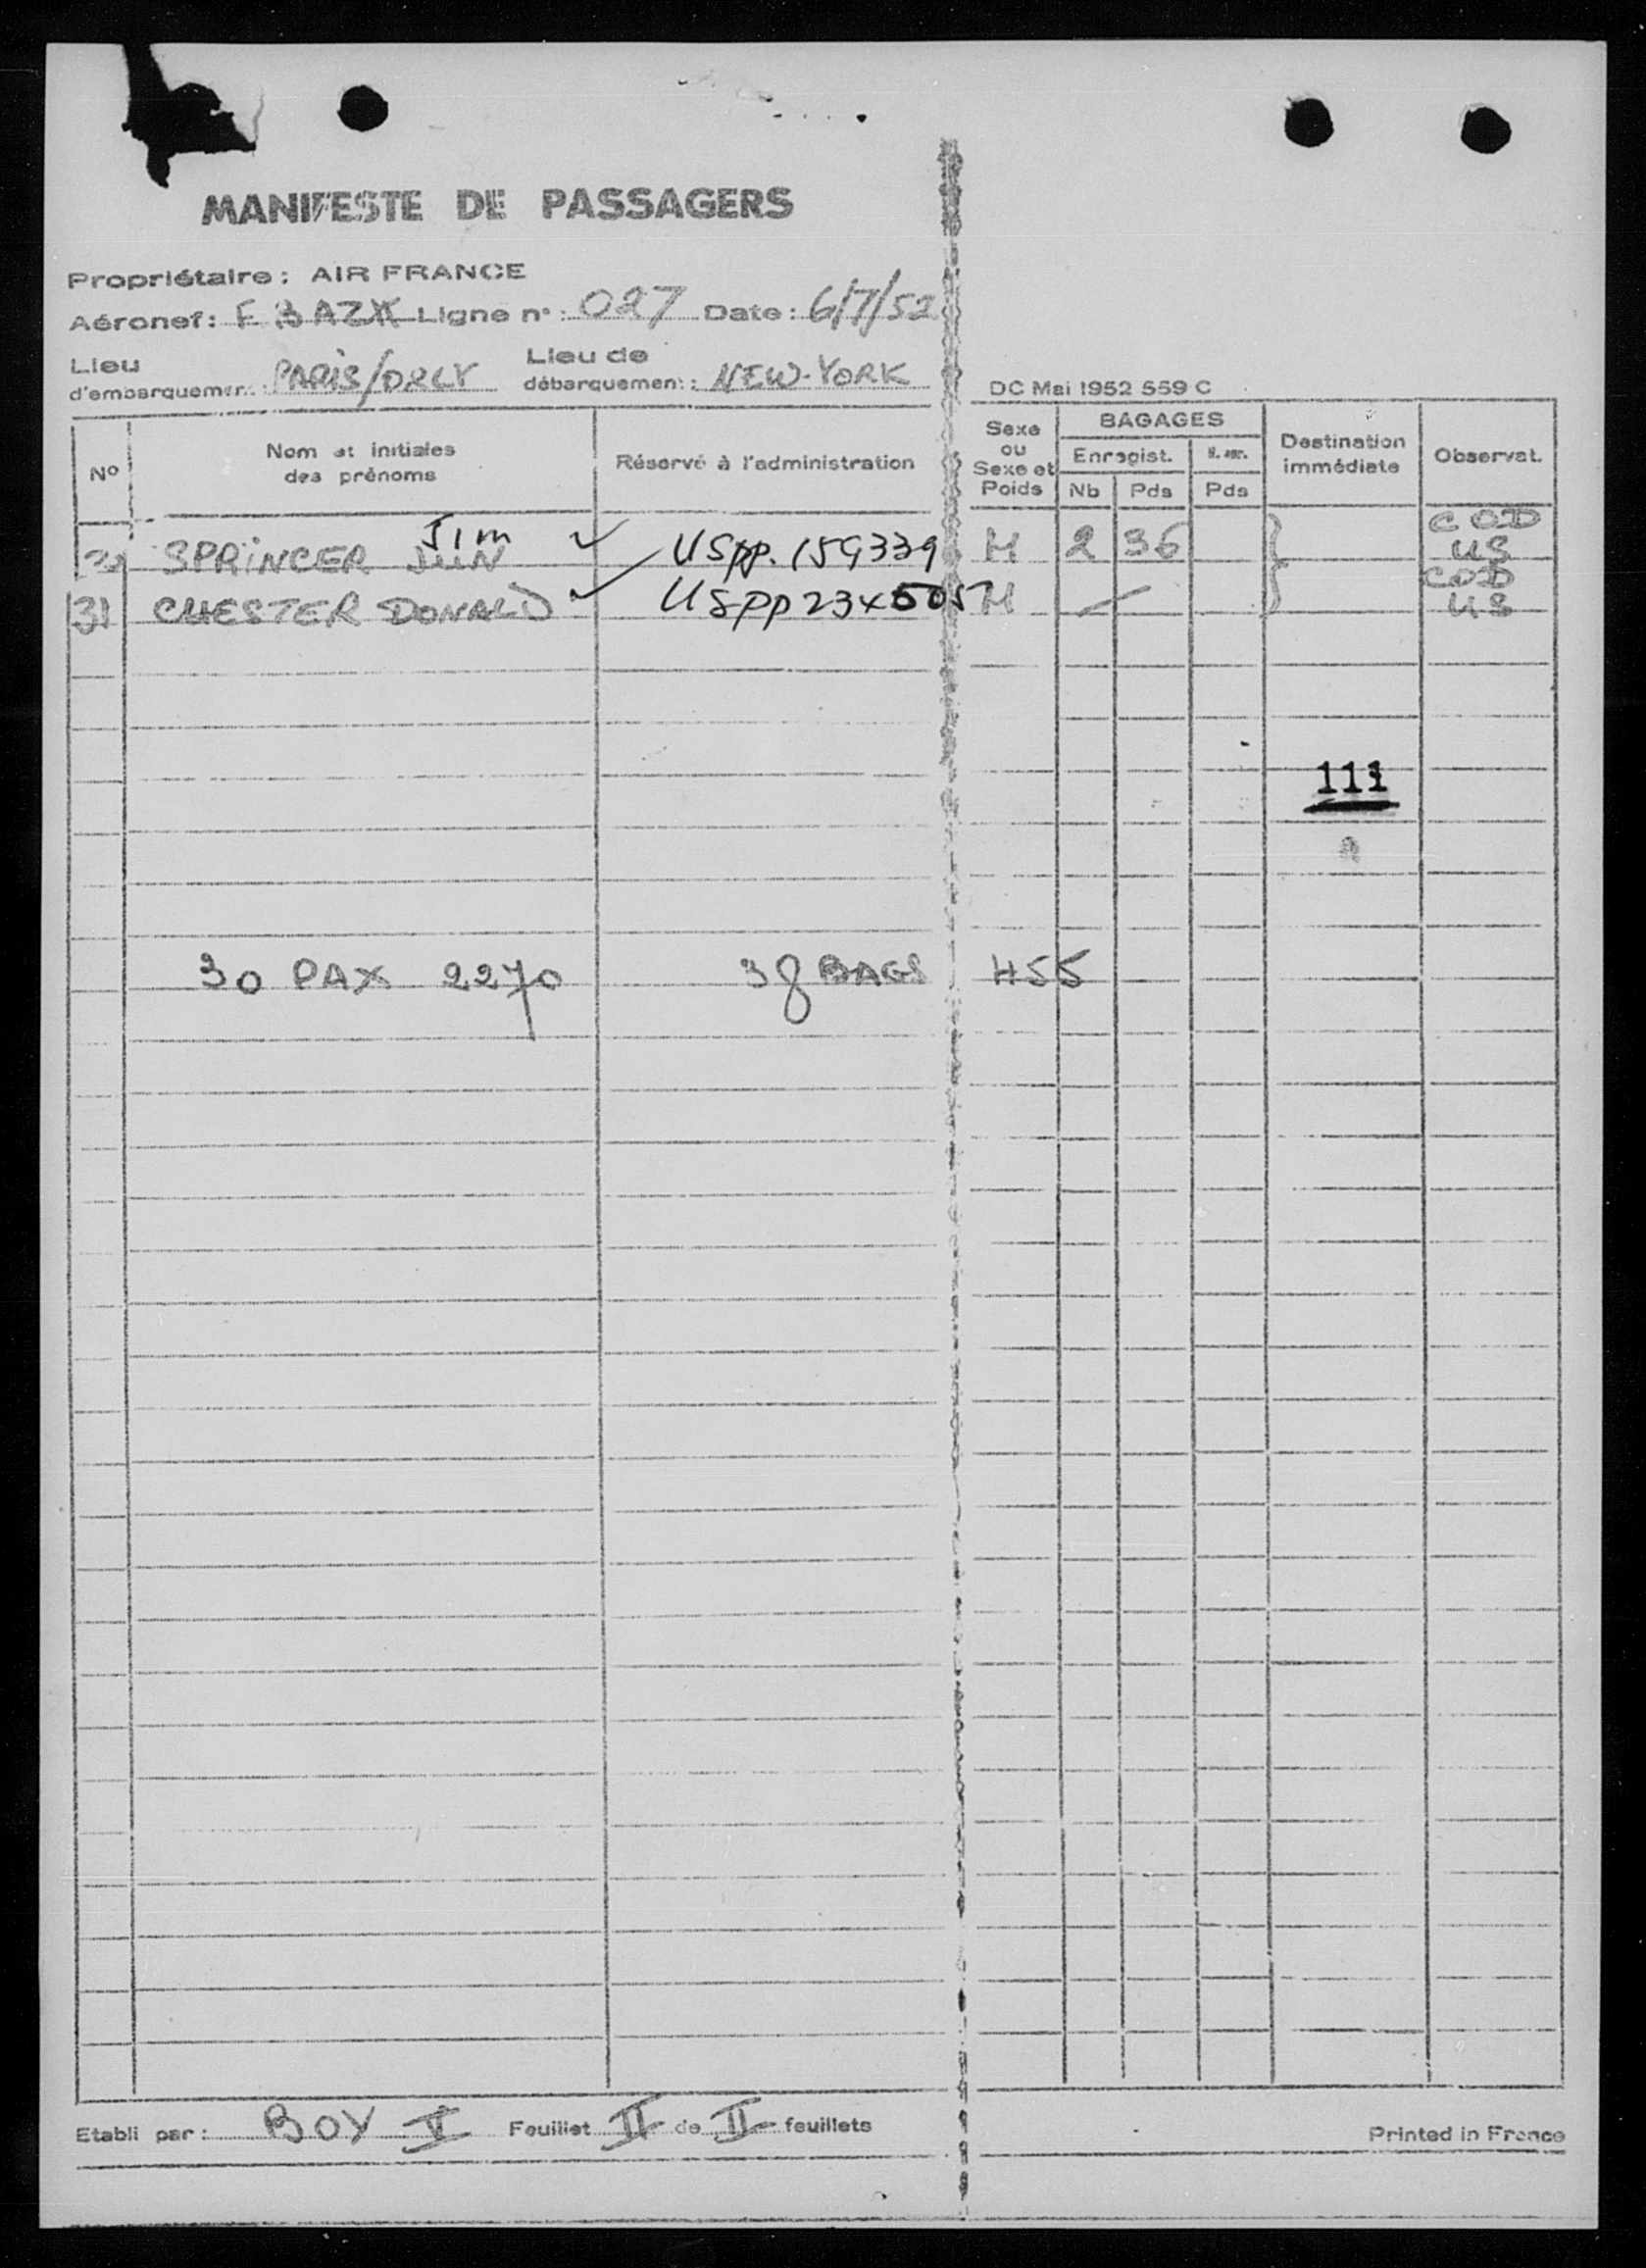 MANIFESTE DE PASSAGERS
Propriétaire : AIR FRANCE
Aéronef : F BAZX Ligne n° : 027 Date : 6/7/52
Lieu d'embarquement : PARIS/ORLY Lieu de débarquement : NEW-YORK
DC Mai 1952 559 C
N° Nom et initiales des prénoms Réservé à l'administration Sexe ou Sexe et Poids BAGAGES Enregist. Nb Pds Pds Destination immédiate Observat.
Jim
SPRINCER JUN USpp. 159339 H 2 36 COD US
31 CHESTER DONALD USpp H COD US
111
30 PAX 2270 38 BAGS 455
Etabli par : BOY V Feuillet II de II feuillets
Printed in France